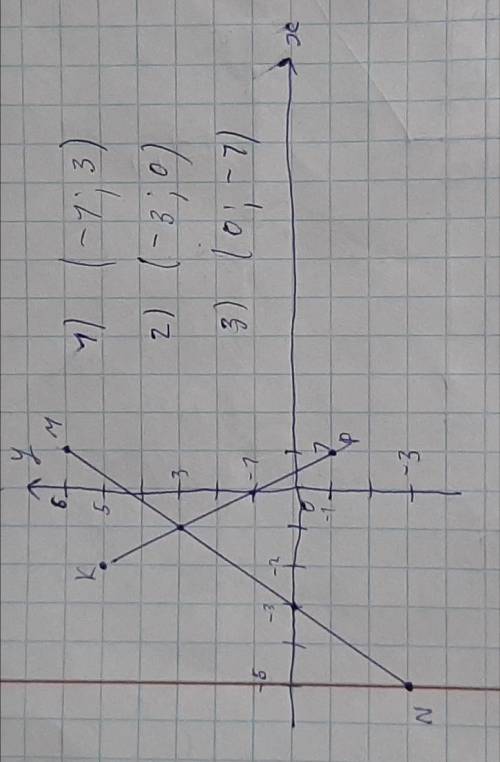 1) (-1; 3)
2) (-3; 0)
3) (0; -1)
y
M
6
5
K
3
-1
x
0
1
P
-1
-3
-2
-3
-5
N